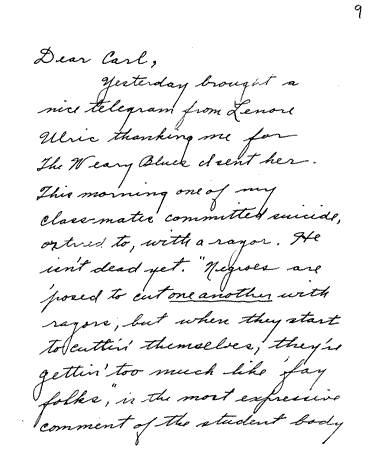 9
Dear Carl,
Yesterday brought a
nice telegram from Lenore
Ulric thanking me for
The Weary Blues I sent her.
This morning one of my
class-mates committed suicide,
or tried to, with a razor. He
isn't dead yet. "Negroes are
'posed to cut one another with
razors, but when they start
to cuttin' themselves, they're
gettin' too much like 'fay
folks," is the most expressive
comment of the student body